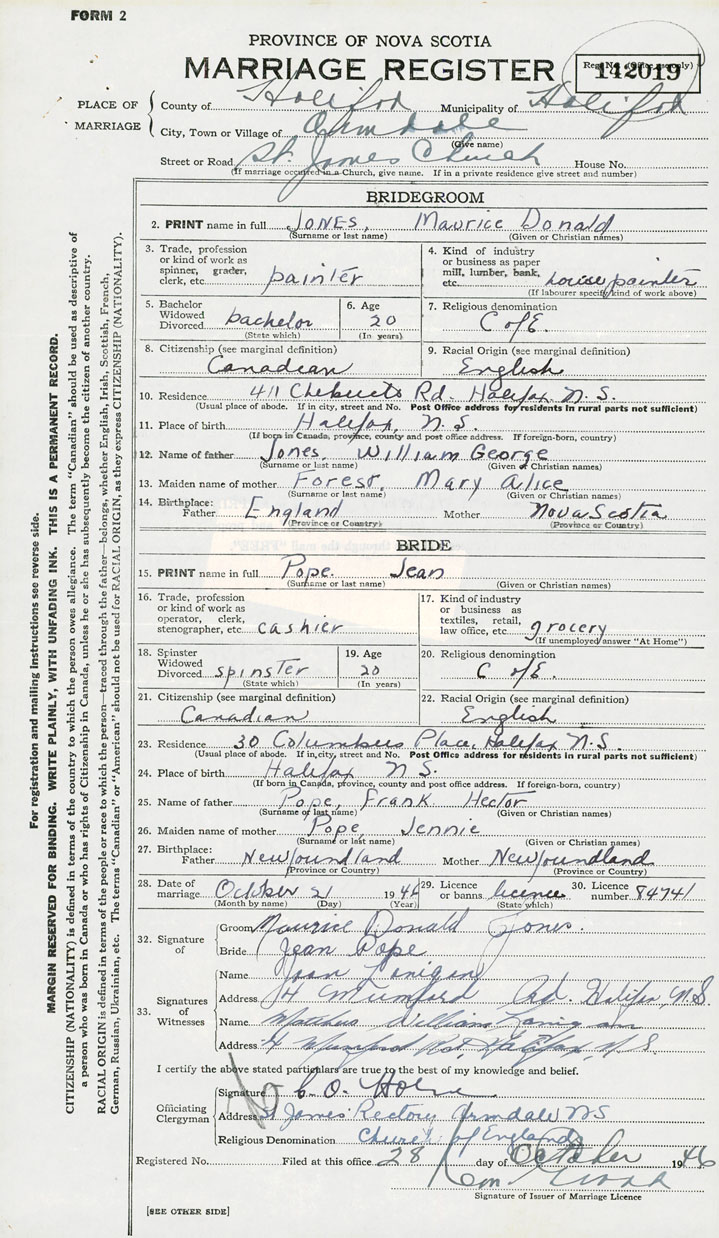 FORM 2
PROVINCE OF NOVA SCOTIA
MARRIAGE REGISTER
Reg. No. (Office use only)
142019
PLACE OF MARRIAGE
County of Halifax Municipality of Halifax
City, Town or Village of Armdale
(Give name)
Street or Road St. James Church House No.
(If marriage occurred in a Church, give name. If in a private residence give street and number)
BRIDEGROOM
2. PRINT name in full JONES, Maurice Donald
(Surname or last name) (Given or Christian names)
3. Trade, profession or kind of work as spinner, grader, clerk, etc. painter
4. Kind of industry or business as paper mill, lumber, bank, etc. house painter
(If labourer specify kind of work above)
5. Bachelor Widowed Divorced bachelor
(State which)
6. Age 20
(In years)
7. Religious denomination C of E.
8. Citizenship (see marginal definition) Canadian
9. Racial Origin (see marginal definition) English
10. Residence 411 Chebucto Rd. Halifax N.S.
(Usual place of abode. If in city, street and No. Post Office address for residents in rural parts not sufficient)
11. Place of birth Halifax, N.S.
(If born in Canada, province, county and post office address. If foreign-born, country)
12. Name of father Jones, William George
(Surname or last name) (Given or Christian names)
13. Maiden name of mother Forest, Mary Alice
(Surname or last name) (Given or Christian names)
14. Birthplace: Father England Mother Nova Scotia
(Province or Country) (Province or Country)
BRIDE
15. PRINT name in full Pope. Jean
(Surname or last name) (Given or Christian names)
16. Trade, profession or kind of work as operator, clerk, stenographer, etc. cashier
17. Kind of industry or business as textiles, retail, law office, etc. grocery
(If unemployed answer "At Home")
18. Spinster Widowed Divorced spinster
(State which)
19. Age 20
(In years)
20. Religious denomination C of E.
21. Citizenship (see marginal definition) Canadian
22. Racial Origin (see marginal definition) English
23. Residence 30 Columbus Place, Halifax N.S.
(Usual place of abode. If in city, street and No. Post Office address for residents in rural parts not sufficient)
24. Place of birth Halifax N.S.
(If born in Canada, province, county and post office address. If foreign-born, country)
25. Name of father Pope, Frank Hector
(Surname or last name) (Given or Christian names)
26. Maiden name of mother Pope, Jennie
(Surname or last name) (Given or Christian names)
27. Birthplace: Father Newfoundland Mother Newfoundland
(Province or Country) (Province or Country)
28. Date of marriage October 21 1946
(Month by name) (Day) (Year)
29. Licence or banns licence
(State which)
30. Licence number 84741
32. Signature of
Groom Maurice Donald Jones.
Bride Jean Pope
33. Signatures of Witnesses
Name Joan Lanigan
Address 14 Mumford Rd. Halifax, N.S.
Name William
Address Mumford Rd, Halifax, N.S.
I certify the above stated particulars are true to the best of my knowledge and belief.
Officiating Clergyman
Signature C. O.
Address St James Rectory Armdale NS
Religious Denomination Church of England
Registered No. Filed at this office 28 day of October 1946
Signature of Issuer of Marriage Licence
[SEE OTHER SIDE]
For registration and mailing instructions see reverse side.
MARGIN RESERVED FOR BINDING. WRITE PLAINLY, WITH UNFADING INK. THIS IS A PERMANENT RECORD.
CITIZENSHIP (NATIONALITY) is defined in terms of the country to which the person owes allegiance. The term "Canadian" should be used as descriptive of
a person who was born in Canada or who has rights of Citizenship in Canada, unless he or she has subsequently become the citizen of another country.
RACIAL ORIGIN is defined in terms of the people or race to which the person—traced through the father—belongs, whether English, Irish, Scottish, French,
German, Russian, Ukrainian, etc. The terms "Canadian" or "American" should not be used for RACIAL ORIGIN, as they express CITIZENSHIP (NATIONALITY).